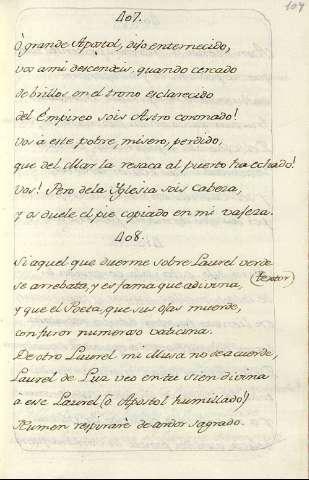 107
407.
O grande Apostol, dijo enternecido,
vos a mi descendeis, quando cercado
de brillos en el trono esclarecido
del Empireo sois Astro coronado!
vos à este pobre, misero, perdido,
que del Mar la resaca al puerto ha echado!
Vos! Pero de la Iglesia sois Cabeza,
y os duele el pie copiado en mi vajeza.
408.
Si aquel que duerme sobre Laurel verde
se arrebata, y es fama que adivina,
(textor)
y que el Poeta, que sus ojas muerde,
con furor numeroso vaticina.
De otro Laurel mi Musa no se acuerde,
Laurel de Luz veo en tu sien divina
à ese Laurel (ò Apostol humillado)!
Numen respirarè de ardor sagrado.